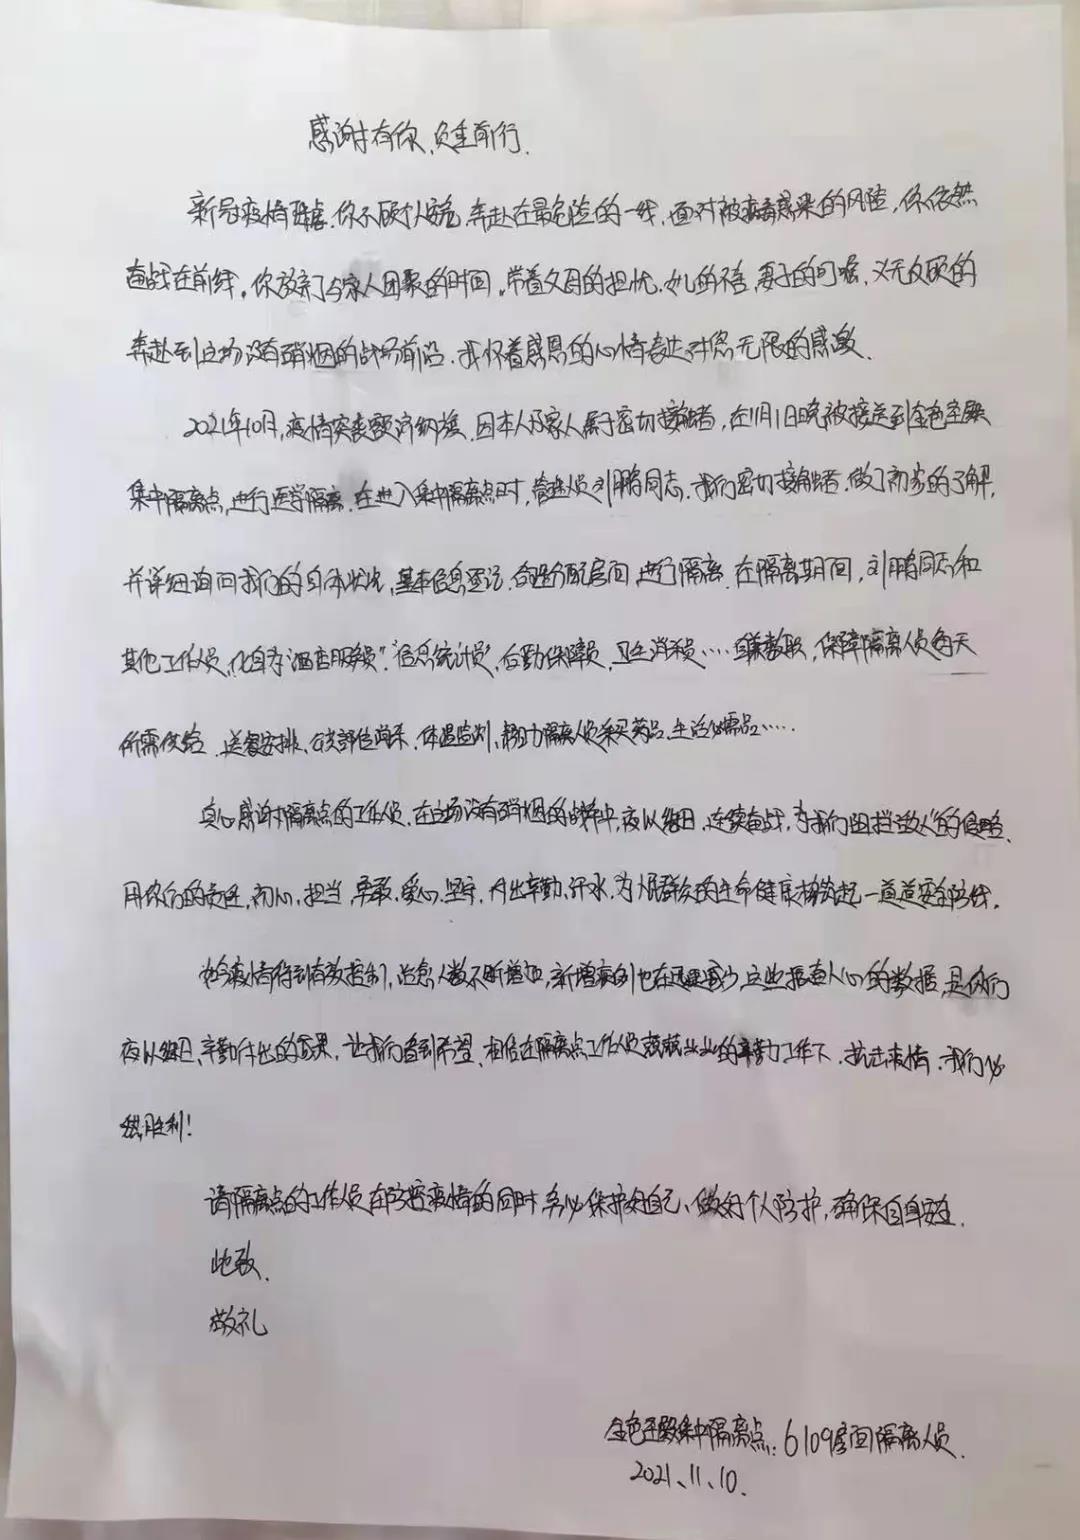 感谢有你、负重前行.
新冠疫情肆虐.你不顾个人安危,奔赴在最危险的一线,面对被病毒感染的风险,你依然
奋战在前线。你放弃了与家人团聚的时间。带着父母的担忧、女儿的不舍、妻子的叮嘱、义无反顾的
奔赴到这场没有硝烟的战场前沿.我怀着感恩的心情表达对您无限的感激.
2021年10月,疫情突袭额济纳旗,因本人及家人属于密切接触者,在11月1日晚被接送到金色圣殿
集中隔离点,进行医学隔离.在进入集中隔离点时,管理人员刘鹏同志.我们密切接触者.做了初步的了解,
并详细询问我们的身体状况,基本信息登记.合理分配房间,进行隔离.在隔离期间,刘鹏同志和
其他工作人员,化身为“酒店服务员”.“信息统计员”.后勤保障员.卫生消杀员……身兼数职,保障隔离人员每天
所需供给.送餐安排.公共部位消杀.体温监测.帮助隔离人员采买药品.生活必需品……
真心感谢隔离点的工作人员.在这场没有硝烟的战争中,夜以继日.连续奋战,为我们阻挡“敌人”的侵略.
用你们的责任,初心,担当,勇敢,爱心,坚守,付出辛勤,汗水,为人民群众的生命健康构筑起一道道安全防线.
如今疫情得到有效控制,治愈人数不断增加,新增病例也在迅速减少,这些振奋人心的数据,是你们
夜以继日,辛勤付出的成果,让我们看到希望.相信在隔离点工作人员兢兢业业的辛勤工作下.抗击疫情.我们必
然胜利!
请隔离点的工作人员在防控疫情的同时,务必保护好自己、做好个人防护,确保自身安全.
此致.
敬礼
金色圣殿集中隔离点:6109房间隔离人员.
2021、11、10.